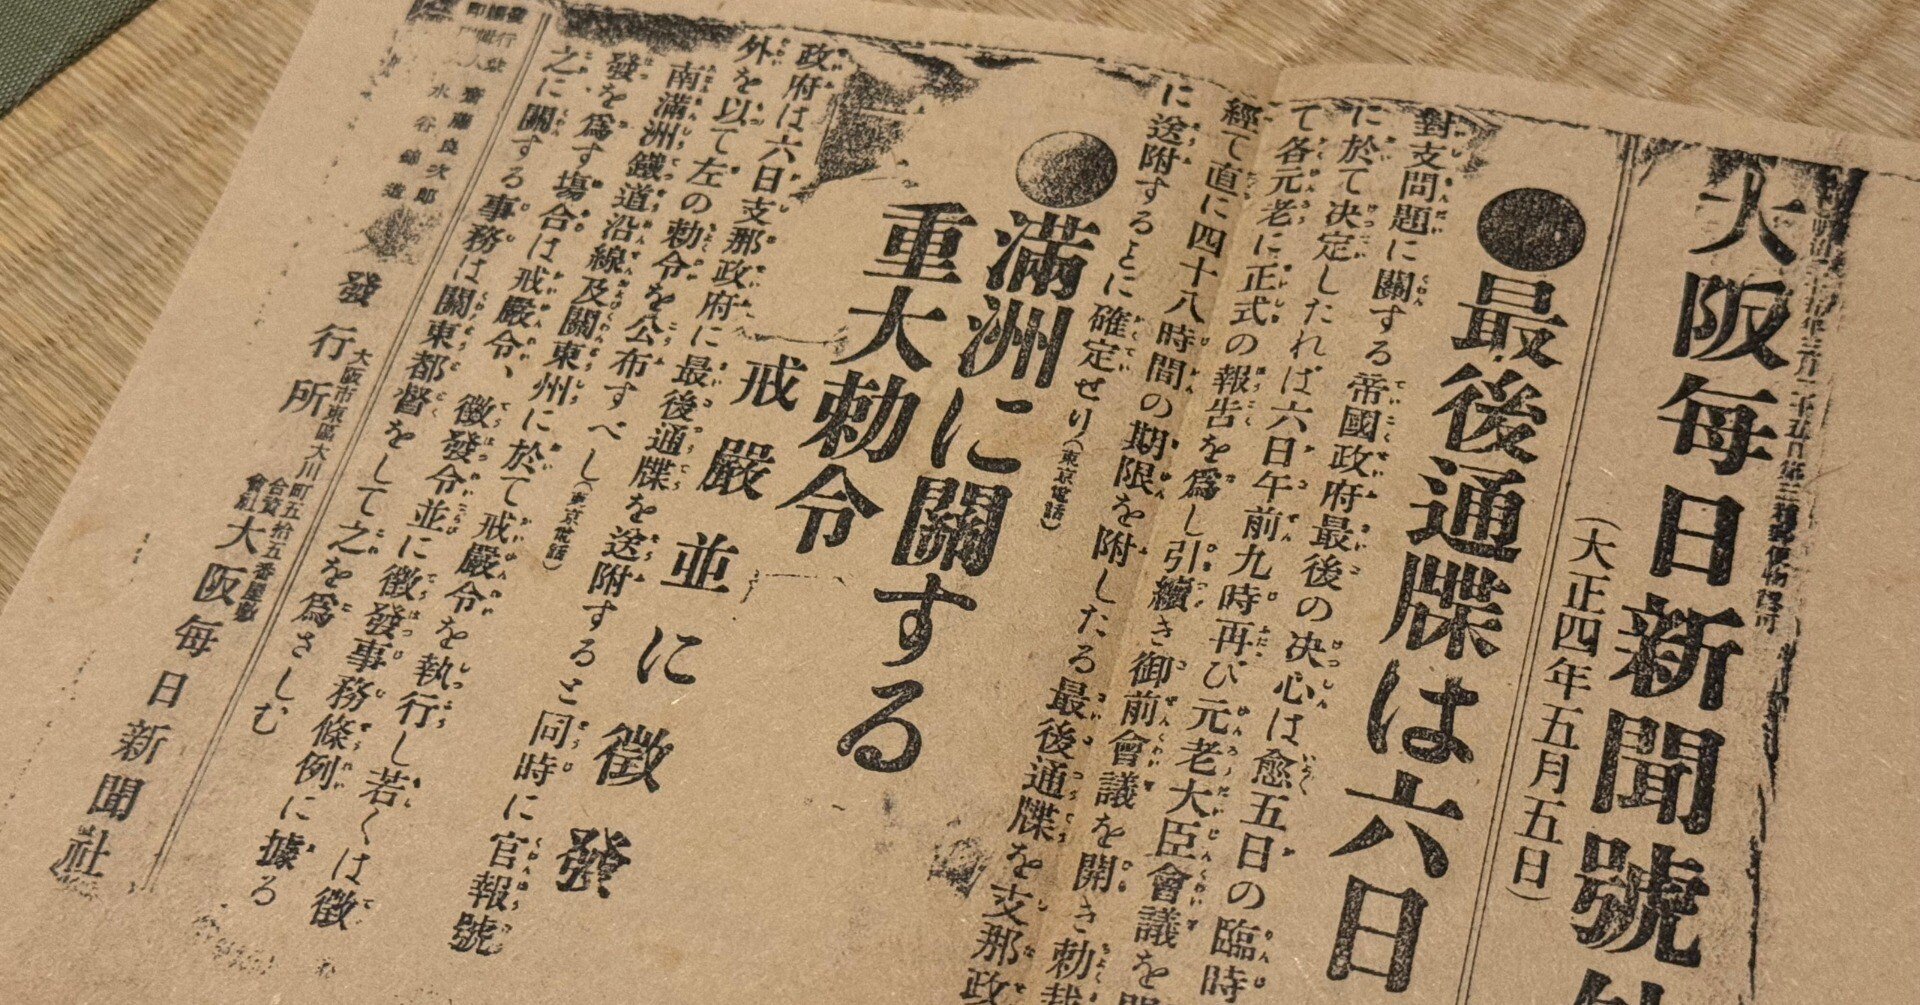 大阪每日新聞號
(大正四年五月五日)
●最後通牒は六日
對支問題に關する帝國政府最後の決心は愈五日の臨時
に於て決定したれば六日午前九時再び元老大臣會議を
て各元老に正式の報告を爲し引續き御前會議を開き勅裁
經て直に四十八時間の期限を附したる最後通牒を支那政
に送附することに確定せり(東京電話)
●滿洲に關する
重大勅令
戒嚴並に徵發
政府は六日支那政府に最後通牒を送附すると同時に官報號
外を以て左の勅令を公布すべし(東京電話)
南滿洲鐵道沿線及關東州に於て戒嚴令を執行し若くは徵
發を爲す塲合は戒嚴令、徵發令並に徵發事務條例に據る
之に關する事務は關東都督をして之を爲さしむ
水谷錦造
發行所
大阪市東區大川町五拾五番屋敷
合資會社
大阪每日新聞社